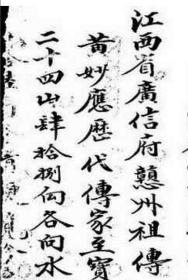 江西省廣信府贛州祖傳
黃妙應歷代傳家至寶
二十四山肆拾捌局各向水